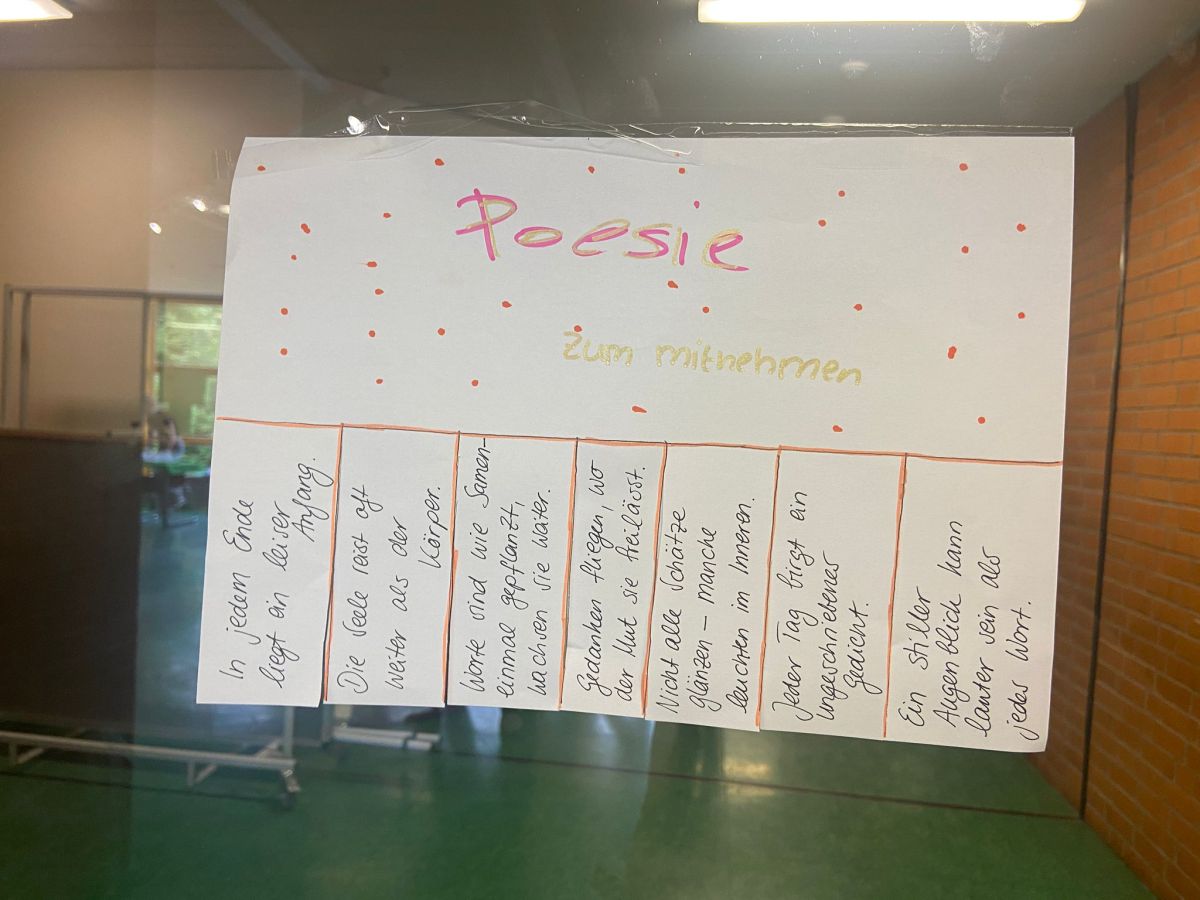 Poesie
zum mitnehmen
In jedem Ende
liegt ein leiser
Anfang.
Die Seele reist oft
weiter als der
Körper.
Worte sind wie Samen-
einmal gepflanzt,
wachsen sie weiter.
Gedanken fliegen, wo
der Mut sie freilässt.
Nicht alle Schätze
glänzen – manche
leuchten im Inneren.
Jeder Tag birgt ein
ungeschriebenes
Gedicht.
Ein stiller
Augenblick kann
lauter sein als
jedes Wort.